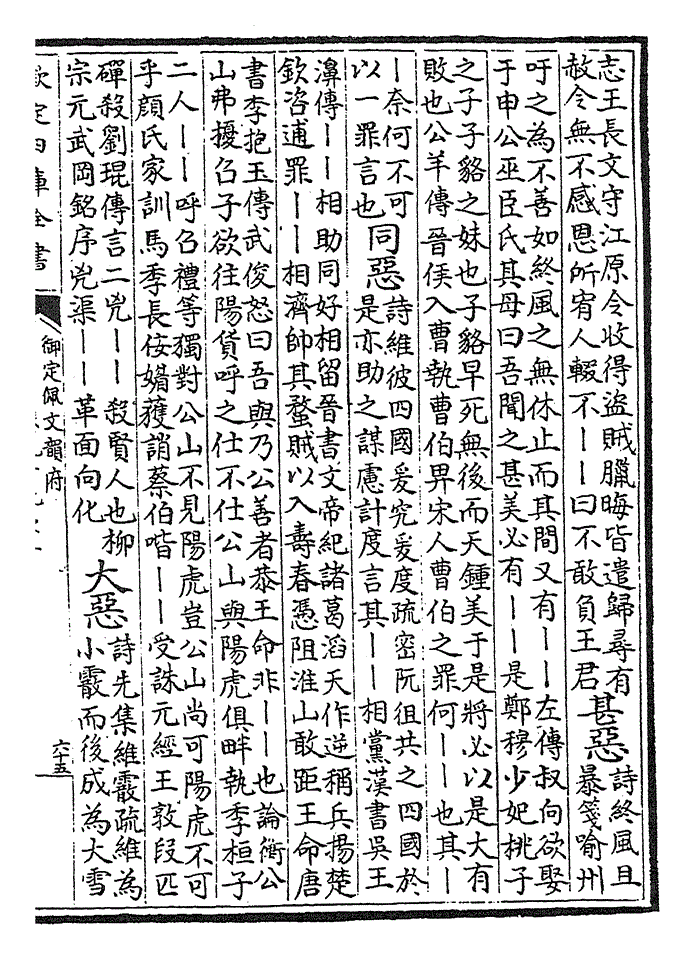 志王長文守江原令收得盜賊臘晦皆遣歸尋有
赦令無不感恩所宥人輟不〡〡曰不敢負王君
甚惡
詩終風且
暴箋喻州
吁之為不善如終風之無休止而其間又有〡〡左傳叔向欲娶
于申公巫臣氏其母曰吾聞之甚美必有〡〡是鄭穆少妃桃子
之子子貉之妹也子貉早死無後而天鍾美于是將必以是大有
敗也公羊傳晉侯入曹執曹伯畀宋人曹伯之罪何〡〡也其〡
〡奈何不可
以一罪言也
同惡
詩維彼四國爰究爰度疏密阮徂共之四國於
是亦助之謀慮計度言其〡〡相黨漢書吳王
濞傳〡〡相助同好相留晉書文帝紀諸葛滔天作逆稱兵揚楚
欽咨逋罪〡〡相濟帥其蝥賊以入壽春憑阻淮山敢距王命唐
書李抱玉傳武俊怒曰吾與乃公善者恭王命非〡〡也論衡公
山弗擾召子欲往陽貨呼之仕不仕公山與陽虎俱畔執季桓子
二人〡〡呼召禮等獨對公山不見陽虎豈公山尚可陽虎不可
乎顏氏家訓馬季長佞媚獲誚蔡伯喈〡〡受誅元經王敦段匹
磾殺劉琨傳言二兇〡〡殺賢人也柳
宗元武岡銘序兇渠〡〡革面向化
大惡
詩先集維霰疏維為
小霰而後成為大雪
欽定四庫全書
御定佩文韻府
六十五